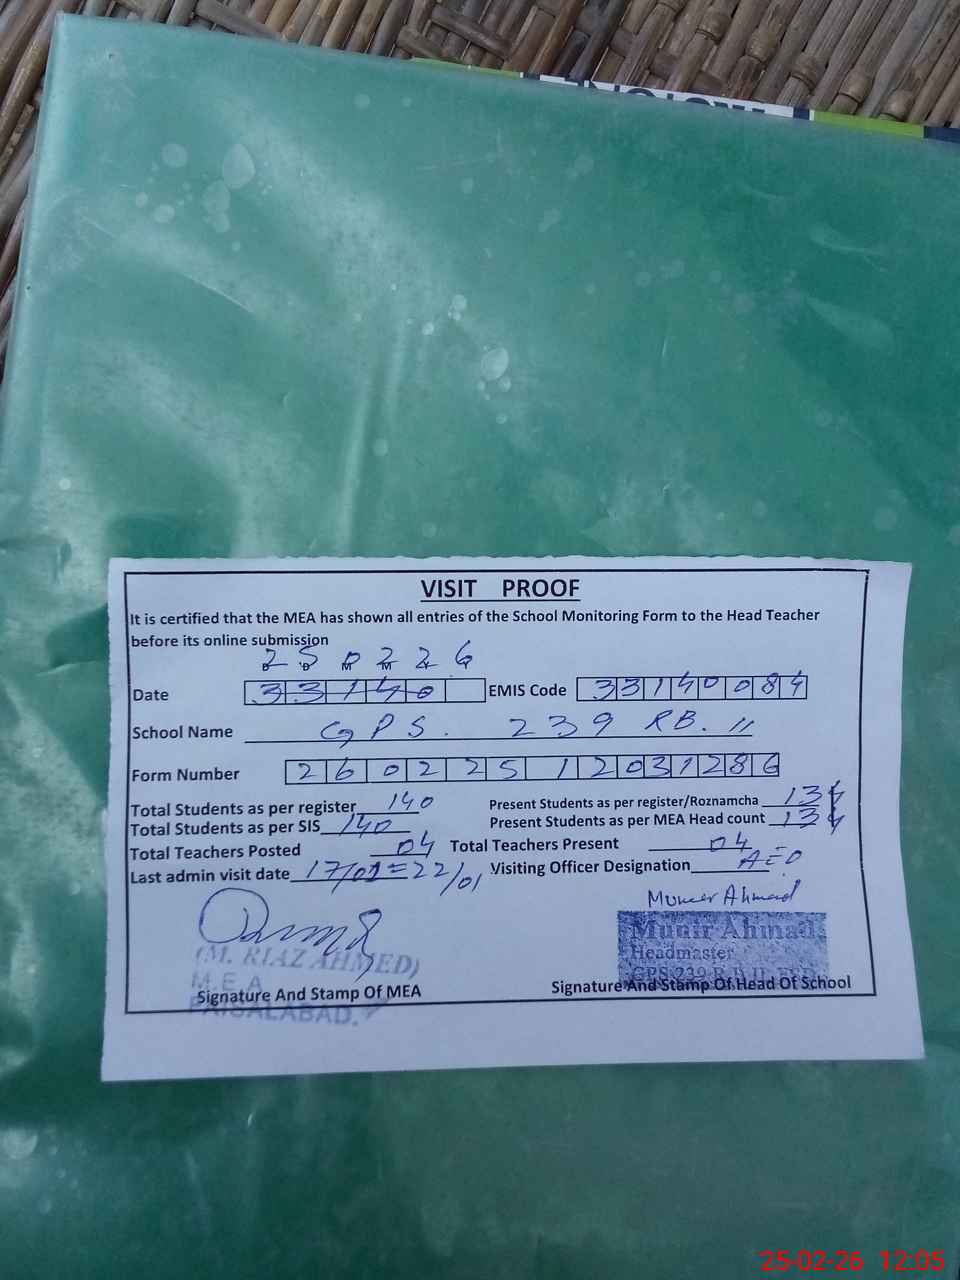 VISIT PROOF
It is certified that the MEA has shown all entries of the School Monitoring Form to the Head Teacher
before its online submission
2 5 0 2 2 6
D D M M Y Y
Date 3 3 1 4 0 EMIS Code 3 3 1 4 0 0 8 4
School Name GPS. 239 RB. II
Form Number 2 6 0 2 2 5 1 2 0 3 1 2 8 6
Total Students as per register 140 Present Students as per register/Roznamcha 134
Total Students as per SIS 140 Present Students as per MEA Head count 134
Total Teachers Posted 04 Total Teachers Present 04
Last admin visit date 17/01 = 22/01 Visiting Officer Designation AEO
Muneer Ahmad
(M. RIAZ AHMED)
M.E.A
FAISALABAD.
Signature And Stamp Of MEA
Munir Ahmad
Headmaster
GPS 239 R.B II
Signature And Stamp Of Head Of School
25-02-26 12:05